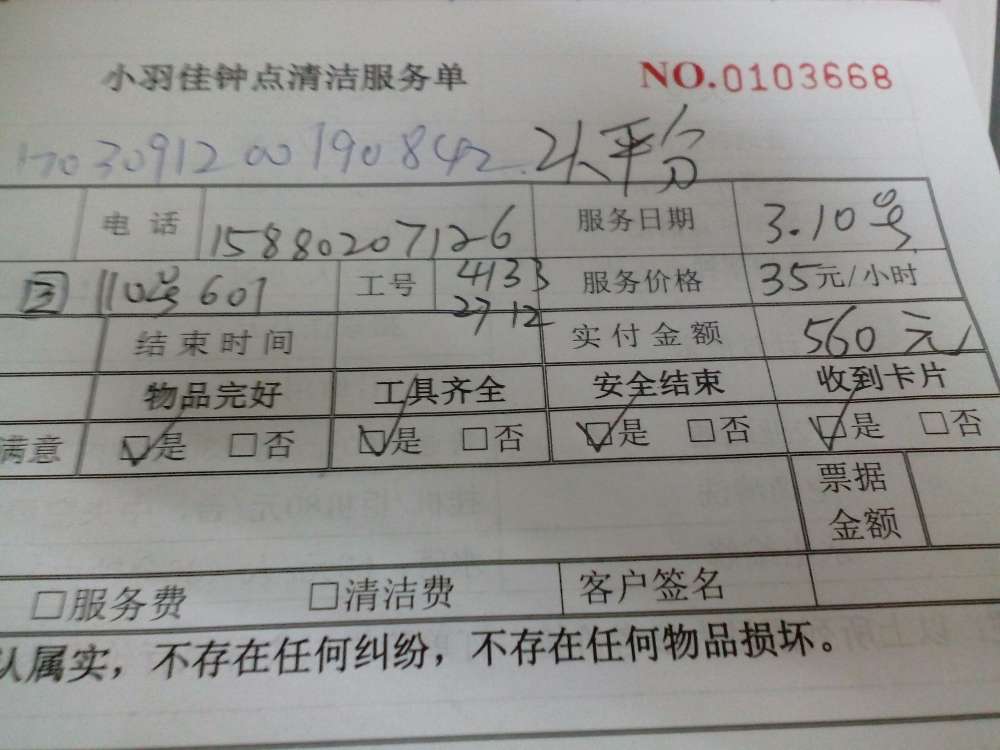 小羽佳钟点清洁服务单 NO.0103668
1703091200190842. 2人平分
电话 15880207126 服务日期 3.10号
110号601 工号 4133 2712 服务价格 35元/小时
结束时间 实付金额 560元
物品完好 工具齐全 安全结束 收到卡片
满意 ☑是 □否 ☑是 □否 ☑是 □否 ☑是 □否
票据金额
□服务费 □清洁费 客户签名
认属实，不存在任何纠纷，不存在任何物品损坏。